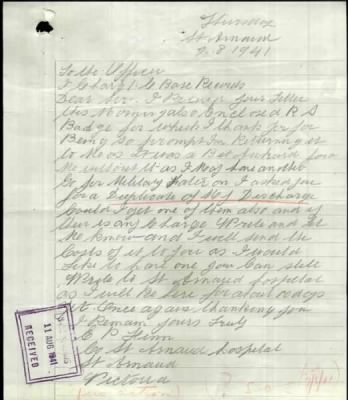 St Arnaud
9.8.1941
To the Officer
I/Charge Base Records
Dear Sir. I Receive your Letter
this Morning also Enclosed R S
Badge for which I thank you for
Being so prompt in Returning it
to Me as it was a Bit Awkward for
Me without it as I May have another
Go for Military Later on I asked you
for a Duplicate of My Discharge
Could I get one of them also and if
their is any Charge Write and let
Me know and I will send the
Costs of it to you as I would
Like to have one you Can still
Write to St Arnaud Hospital
as I will be here for about 10 days
Once again thanking you
I Remain yours Truly
C P Flinn
C/o St Arnaud Hospital
St Arnaud
Victoria
RECEIVED
11 AUG 1941